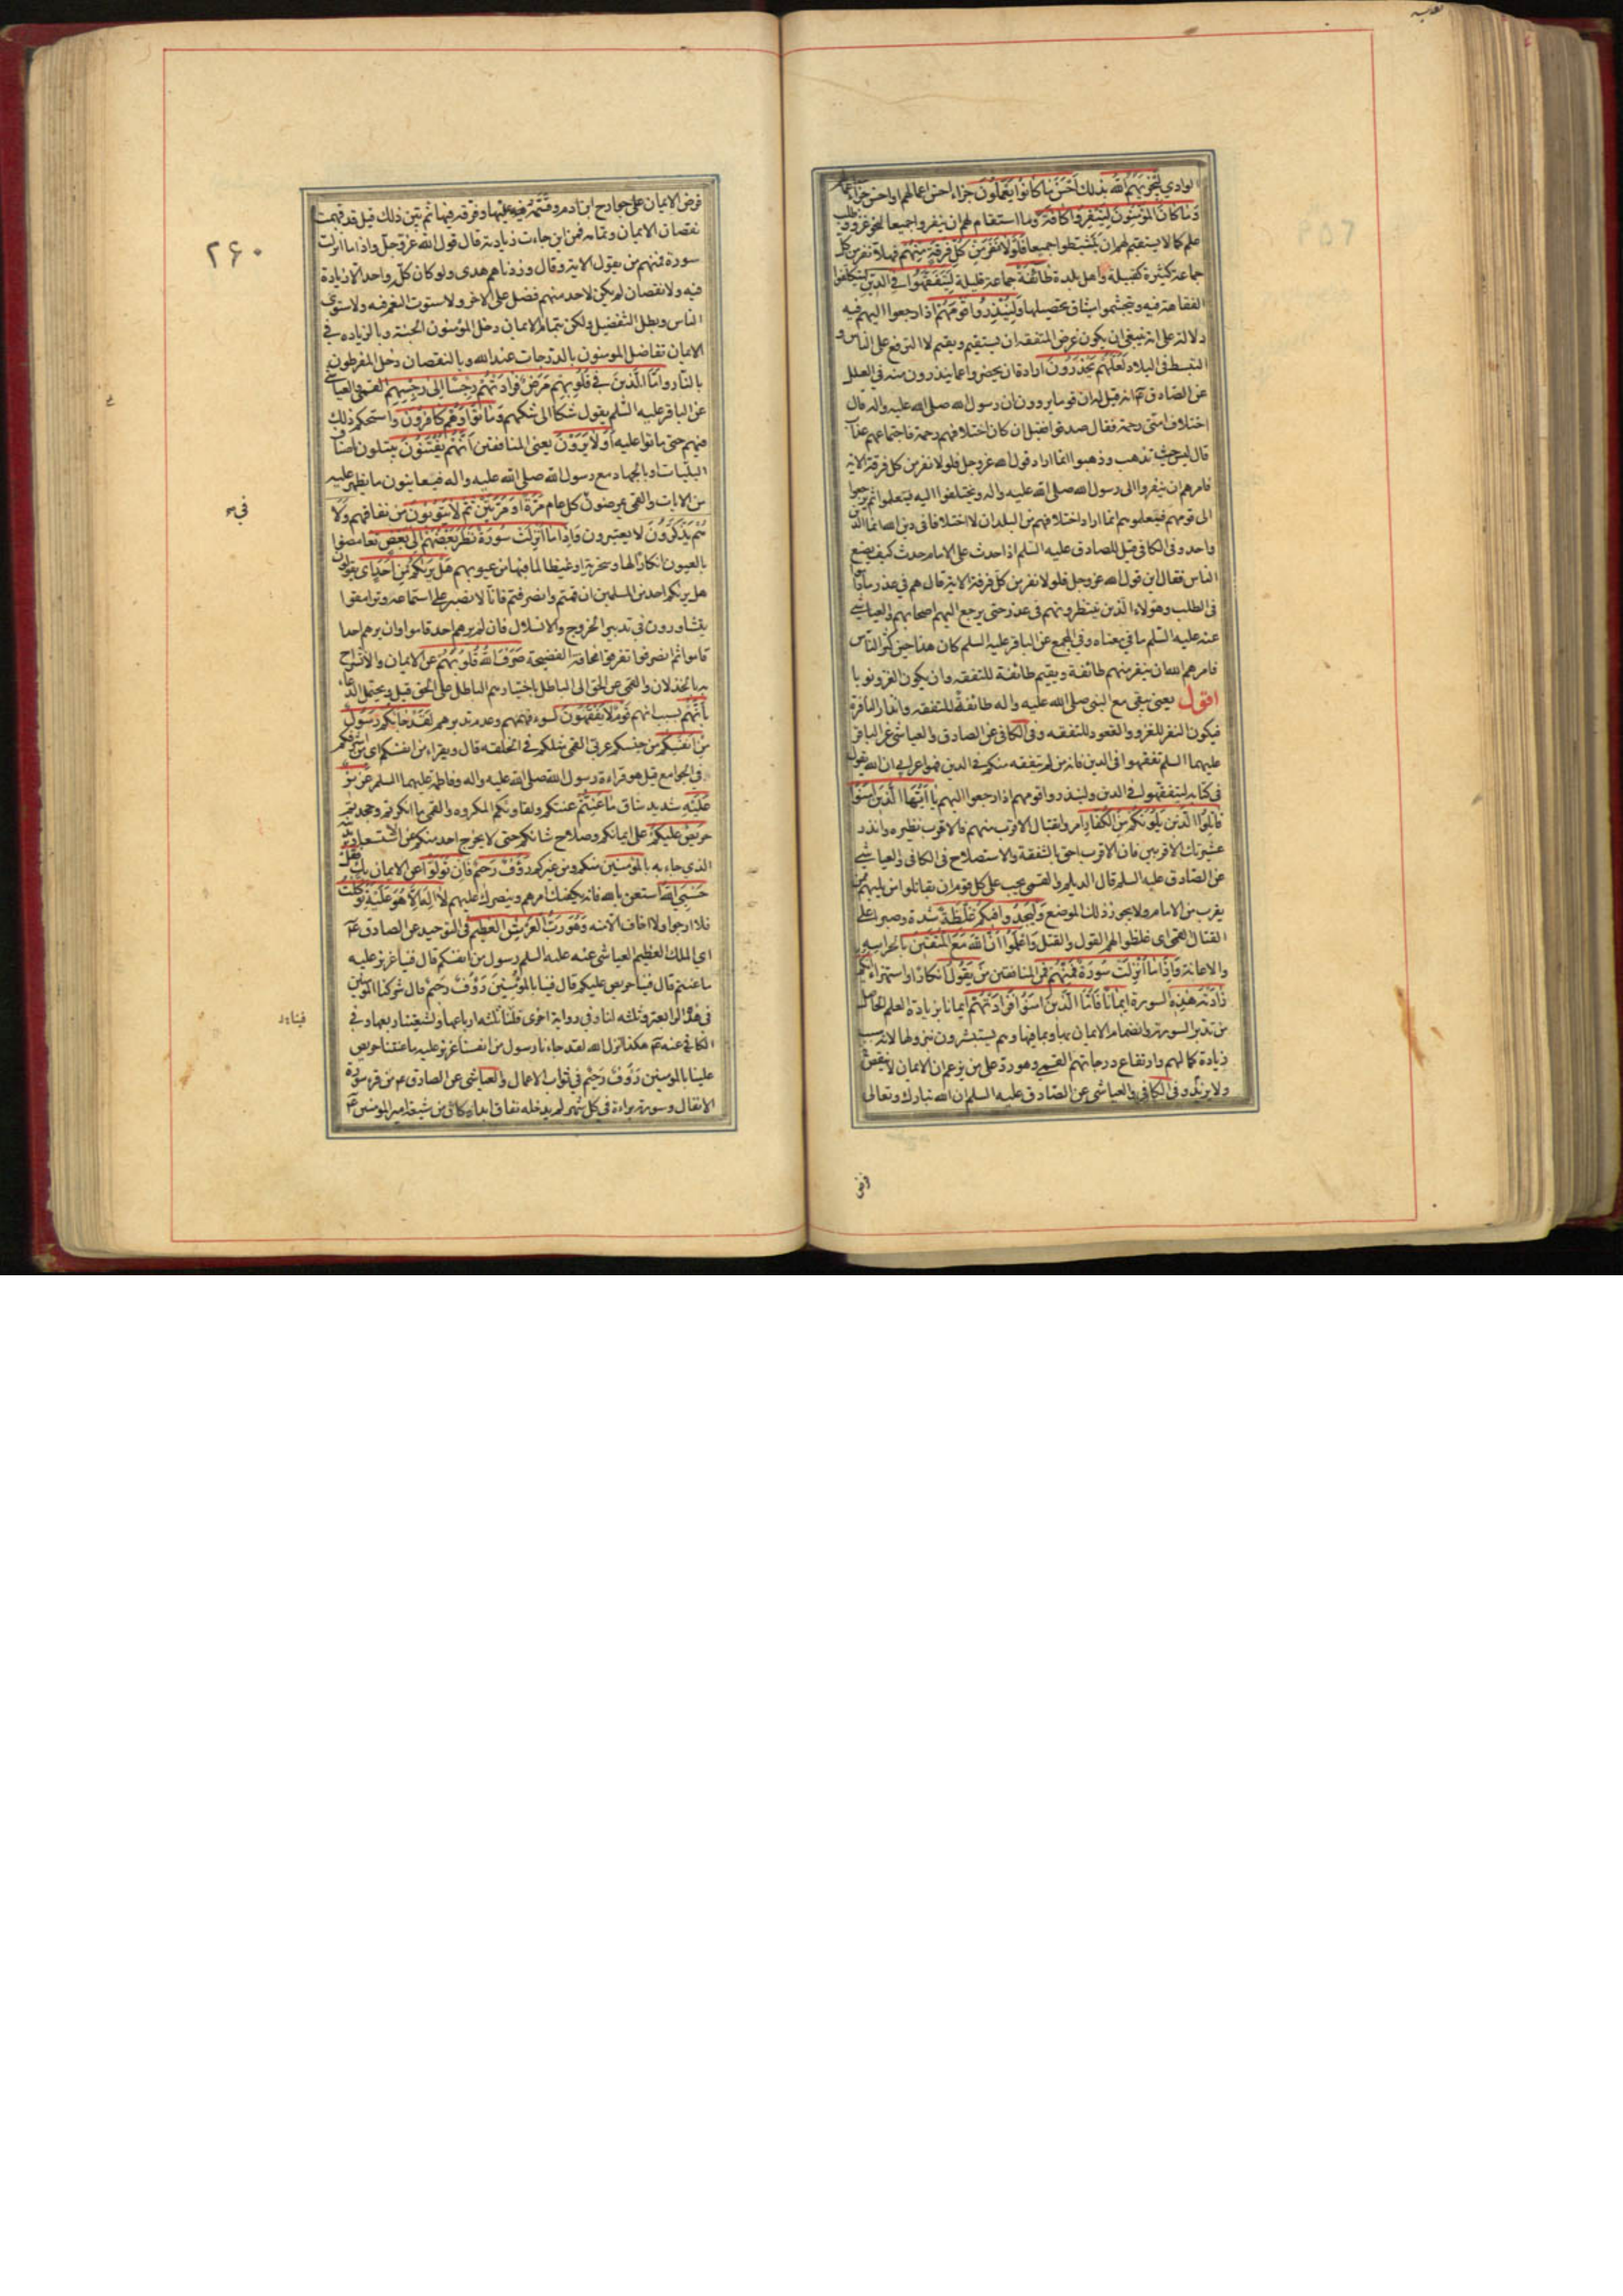 لوادي ليجزيهم الله بذلك أحسن ما كانوا يعملون جزاء احسن اعمالهم واحسن جزاء اعمالهم
وما كان المؤمنون لينفروا كافة وما استقام لهم ان ينفروا جميعا لنحو غزو وطلب
علم كما لا يستقيم لهم ان يتثبطوا جميعا فلولا نفر من كل فرقة منهم فهلا نفر من كل
جماعة كثيرة كقبيلة واهل بلدة طائفة جماعة قليلة ليتفقهوا في الدين ليتكلفوا
الفقاهة فيه ويتجشموا مشاق تحصيلها ولينذروا قومهم اذا رجعوا اليهم فيه
دلالة على انه ينبغي ان يكون غرض المتفقه ان يستقيم ويقيم لا الترفع على الناس و
التبسط في البلاد لعلهم يحذرون ارادة ان يحذروا عما ينذرون منه في العلل
عن الصادق ع انه قيل له ان قوما يروون ان رسول الله صلى الله عليه واله قال
اختلاف امتى رحمة فقال صدقوا فقيل ان كان اختلافهم رحمة فاجتماعهم عذاب
قال ليس حيث تذهب وذهبوا انما اراد قول الله عز وجل فلولا نفر من كل فرقة الاية
فامرهم ان ينفروا الى رسول الله صلى الله عليه واله ويختلفوا اليه فيتعلموا ثم يرجعوا
الى قومهم فيعلموهم انما اراد اختلافهم من البلدان لا اختلافا في دين الله انما الدين
واحد وفي الكافي قيل للصادق عليه السلم اذا حدث على الامام حدث كيف يصنع
الناس فقال اين قول الله عز وجل فلولا نفر من كل فرقة الاية قال هم في عذر ما داموا
في الطلب وهؤلاء الذين ينتظرونهم في عذر حتى يرجع اليهم اصحابهم والعياشي
عنه عليه السلم ما في معناه وفي المجمع عن الباقر عليه السلم كان هذا حين كثر الناس
فامرهم الله ان ينفر منهم طائفة ويقيم طائفة للتفقه وان يكون الغزو نوبا
اقول يعني يبقى مع النبي صلى الله عليه واله طائفة للتفقه وانذار النافرة
فيكون النفر للغزو والقعود للتفقه وفي الكافي عن الصادق والعياشي عن الباقر
عليهما السلم تفقهوا في الدين فانه من لم يتفقه منكم في الدين فهو اعرابي ان الله يقول
في كتابه ليتفقهوا في الدين ولينذروا قومهم اذا رجعوا اليهم يا ايها الذين امنوا
قاتلوا الذين يلونكم من الكفار امروا بقتال الاقرب منهم فالاقرب نظيره وانذر
عشيرتك الاقربين فان الاقرب احق بالشفقة والاستصلاح في الكافي والعياشي
عن الصادق عليه السلم قال الديلم والقمي يجب على كل قوم ان يقاتلوا من يليهم ممن
يقرب من الامام ولا يجوز ذلك الموضع وليجدوا فيكم غلظة شدة وصبرا على
القتال القمي اي غلظوا لهم القول والقتل واعلموا ان الله مع المتقين بالحراسة
والاعانة واذا ما أنزلت سورة فمنهم فمن المنافقين من يقول انكارا واستهزاء ايكم
زادته هذه السورة ايمانا فاما الذين امنوا فزادتهم ايمانا بزيادة العلم الحاصل
من تدبر السورة وانضمام الايمان بها وبما فيها وهم يستبشرون بنزولها لانه سبب
زيادة كمالهم وارتفاع درجاتهم القمي وهو رد على من يزعم ان الايمان لا ينقص
ولا يزيد وفي الكافي والعياشي عن الصادق عليه السلم ان الله تبارك وتعالى
فرض
۲۶۰
فرض الايمان على جوارح ابن ادم وقسمه عليها وفرقه فيها ثم بين ذلك قيل قد فهمت
نقصان الايمان وتمامه فمن اين جاءت زيادته قال قول الله عز وجل واذا ما انزلت
سورة فمنهم من يقول الاية وقال وزدناهم هدى ولو كان كل واحد لا زيادة
فيه ولا نقصان لم يكن لاحد منهم فضل على الاخر ولاستوت النعم فيه ولاستوى
الناس وبطل التفضيل ولكن بتمام الايمان دخل المؤمنون الجنة وبالزيادة في
الايمان تفاضل المومنون بالدرجات عند الله وبالنقصان دخل المفرطون
بالنار واما الذين في قلوبهم مرض فزادتهم رجسا الى رجسهم القمي والعياشي
عن الباقر عليه السلم يقول شكا الى شكهم وماتوا وهم كافرون واستحكم ذلك
فيهم حتى ماتوا عليه أولا يرون يعني المنافقين أنهم يفتنون يبتلون باصناف
البليات او بالجهاد مع رسول الله صلى الله عليه واله فيعاينون ما يظهر عليه
من الايات والقمي يمرضون كل عام مرة او مرتين ثم لا يتوبون من نفاقهم ولا
هم يذكرون لا يعتبرون واذا ما أنزلت سورة نظر بعضهم الى بعض تغامضوا
بالعيون انكارا لها وسخرية او غيظا لما فيها من عيوبهم هل يريكم من أحد اي يقولون
هل يريكم احد من المسلمين ان قمتم وانصرفتم فانا لا نصبر على استماعه وترامقوا
يتشاورون في تدبير الخروج والانسلال فان لم يرهم احد قاموا وان يرهم احد ا
قاموا ثم انصرفوا تفرقوا مخافة الفضيحة صرف الله قلوبهم عن الايمان والانشراح
به بالخذلان والقمي عن الحق الى الباطل باختيارهم الباطل على الحق قيل ويحتمل الدعاء
بأنهم بسبب انهم قوم لا يفقهون لسوء فهمهم وعدم تدبرهم لقد جاءكم رسول
من أنفسكم من جنسكم عربي القمي مثلكم في الخلقة قال ويقراء من انفسكم اي من اشرفكم
في الجوامع قيل هو قراءة رسول الله صلى الله عليه واله وفاطمة عليهما السلم عزيز
عليه شديد شاق ما عنتم عنتكم ولقاؤكم المكروه والقمي ما انكرتم وجحدتم
حريص عليكم على ايمانكم وصلاح شانكم حتى لا يخرج احد منكم عن الاستسعاد بدينه
الذي جاء به بالمؤمنين منكم ومن غيركم رؤف رحيم فان تولوا عن الايمان بك فقل
حسبي الله استعن بالله فانه يكفيك امرهم وينصرك عليهم لا اله الا هو عليه توكلت
فلا ارجوا ولا اخاف الا منه وهو رب العرش العظيم في التوحيد عن الصادق ع
اي الملك العظيم العياشي عنه عليه السلم رسول من انفسكم قال فينا عزيز عليه
ما عنتم قال فينا حريص عليكم قال فينا بالمؤمنين رؤف رحيم قال شركنا المؤمنين
في هذه الرابعة وثلثه لنا وفي رواية اخرى فلنا ثلثة ارباعها ولشيعتنا ربعها وفي
الكافي عنه ع هكذا انزل الله لقد جاءنا رسول من انفسنا عزيز عليه ما عنتنا حريص
علينا بالمومنين رؤف رحيم في ثواب الاعمال والعياشي عن الصادق ع من قرء سورة
الانفال وسورة براءة في كل شهر لم يدخله نفاق ابدا وكان من شيعة امير المومنين ع